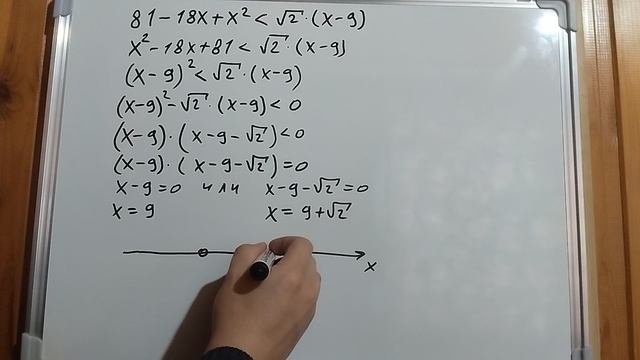 81-18x+x²<√2·(x-9)
x²-18x+81<√2·(x-9)
(x-9)²<√2·(x-9)
(x-9)²-√2·(x-9)<0
(x-9)·(x-9-√2)<0
(x-9)·(x-9-√2)=0
x-9=0 или x-9-√2=0
x=9 x=9+√2
x